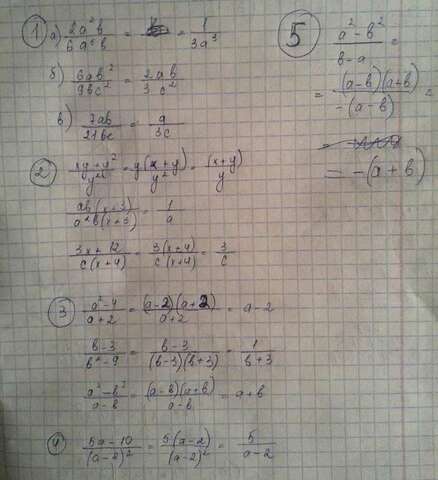 1 а) 2a²b / 6a⁵b = = 1 / 3a³
б) 6ab² / 9bc² = 2ab / 3c²
в) 7ab / 21bc = a / 3c
2 xy+y² / y² = y(x+y) / y² = (x+y) / y
ab(x+3) / a²b(x+3) = 1 / a
3x+12 / c(x+4) = 3(x+4) / c(x+4) = 3 / c
3 a²-4 / a+2 = (a-2)(a+2) / a+2 = a-2
b-3 / b²-9 = b-3 / (b-3)(b+3) = 1 / b+3
a²-b² / a-b = (a-b)(a+b) / a-b = a+b
4 5a-10 / (a-2)² = 5(a-2) / (a-2)² = 5 / a-2
5 a²-b² / b-a =
= (a-b)(a+b) / -(a-b) =
=
= -(a+b)